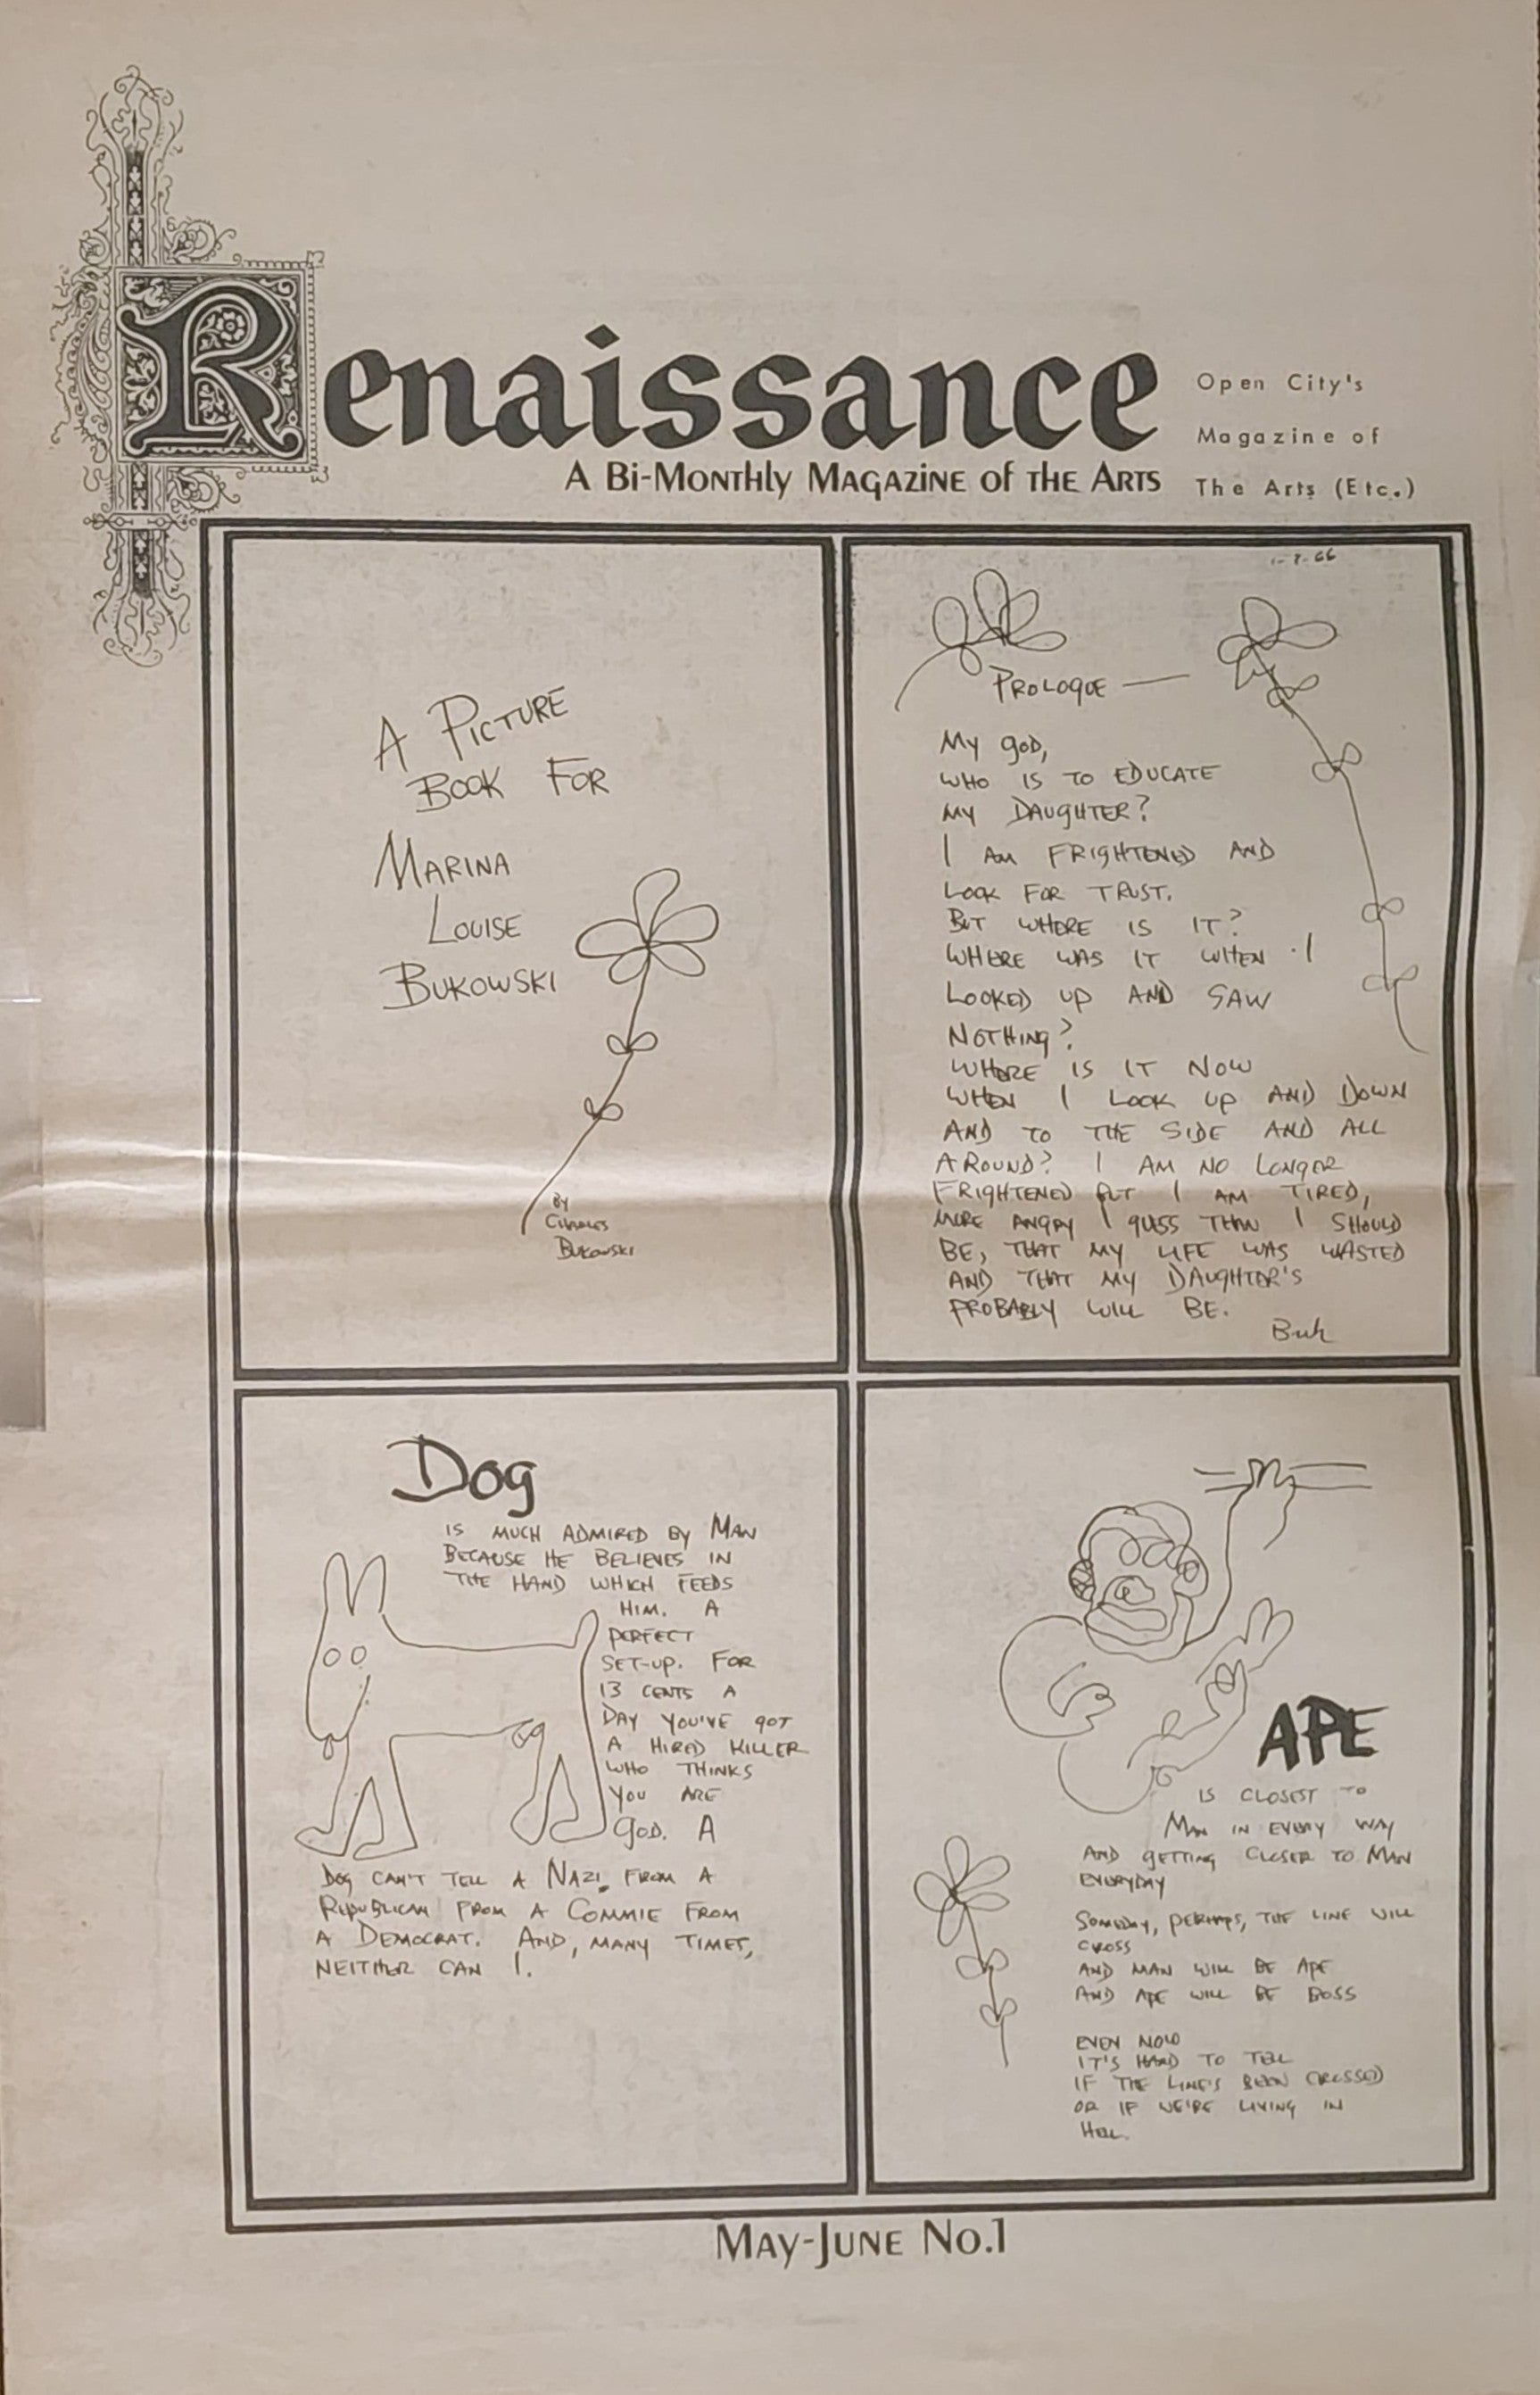 Renaissance
A Bi-Monthly Magazine of the Arts
Open City's
Magazine of
The Arts (Etc.)
A PICTURE
BOOK FOR
MARINA
LOUISE
BUKOWSKI
BY
CHARLES
BUKOWSKI
66
PROLOGUE —
MY GOD,
WHO IS TO EDUCATE
MY DAUGHTER?
I AM FRIGHTENED AND
LOOK FOR TRUST.
BUT WHERE IS IT?
WHERE WAS IT WHEN I
LOOKED UP AND SAW
NOTHING?
WHERE IS IT NOW
WHEN I LOOK UP AND DOWN
AND TO THE SIDE AND ALL
AROUND? I AM NO LONGER
FRIGHTENED BUT I AM TIRED,
MORE ANGRY I GUESS THAN I SHOULD
BE, THAT MY LIFE WAS WASTED
AND THAT MY DAUGHTER'S
PROBABLY WILL BE.
Buk
DOG
IS MUCH ADMIRED BY MAN
BECAUSE HE BELIEVES IN
THE HAND WHICH FEEDS
HIM. A
PERFECT
SET-UP. FOR
13 CENTS A
DAY YOU'VE GOT
A HIRED KILLER
WHO THINKS
YOU ARE
GOD. A
DOG CAN'T TELL A NAZI FROM A
REPUBLICAN FROM A COMMIE FROM
A DEMOCRAT. AND, MANY TIMES,
NEITHER CAN I.
APE
IS CLOSEST TO
MAN IN EVERY WAY
AND GETTING CLOSER TO MAN
EVERYDAY
SOMEDAY, PERHAPS, THE LINE WILL
CROSS
AND MAN WILL BE APE
AND APE WILL BE BOSS
EVEN NOW
IT'S HARD TO TELL
IF THE LINE'S BEEN CROSSED
OR IF WE'RE LIVING IN
HELL.
May-June No.1